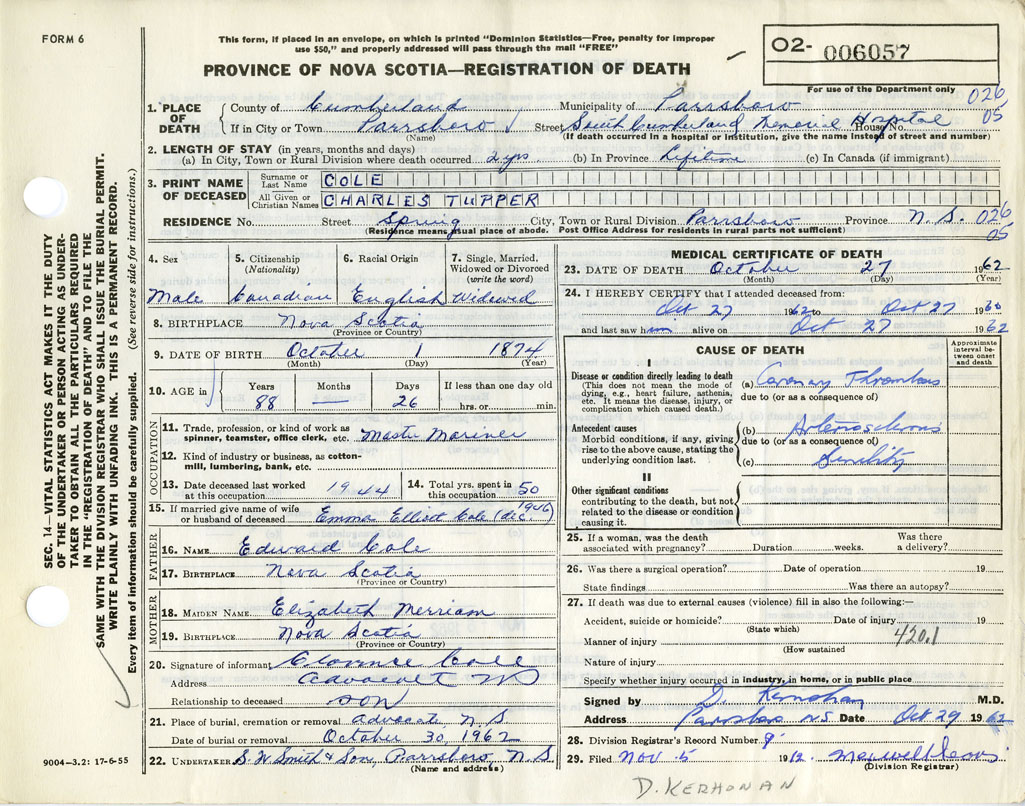 FORM 6
This form, if placed in an envelope, on which is printed "Dominion Statistics—Free, penalty for improper
use $50," and properly addressed will pass through the mail "FREE"
PROVINCE OF NOVA SCOTIA—REGISTRATION OF DEATH
O2- 006057
For use of the Department only
026
05
1. PLACE OF DEATH
County of Cumberland Municipality of Parrsboro
If in City or Town Parrsboro Street South Cumberland Memorial Hospital House No.
(Name) (If death occurred in a hospital or institution, give the name instead of street and number)
2. LENGTH OF STAY (in years, months and days)
(a) In City, Town or Rural Division where death occurred 2 yrs (b) In Province Lifetime (c) In Canada (if immigrant)
3. PRINT NAME OF DECEASED
Surname or Last Name COLE
All Given or Christian Names CHARLES TUPPER
RESIDENCE No. Street Spring City, Town or Rural Division Parrsboro Province N.S. 026
05
(Residence means usual place of abode. Post Office Address for residents in rural parts not sufficient)
4. Sex
Male
5. Citizenship
(Nationality)
Canadian
6. Racial Origin
English
7. Single, Married,
Widowed or Divorced
(write the word)
Widowed
8. BIRTHPLACE Nova Scotia
(Province or Country)
9. DATE OF BIRTH October 1 1874
(Month) (Day) (Year)
10. AGE in
Years Months Days If less than one day old
88 — 26 hrs. or min.
OCCUPATION
11. Trade, profession, or kind of work as
spinner, teamster, office clerk, etc. Master Mariner
12. Kind of industry or business, as cotton-
mill, lumbering, bank, etc.
13. Date deceased last worked
at this occupation 1944
14. Total yrs. spent in
this occupation 50
15. If married give name of wife
or husband of deceased Emma Elliott Cole (dec. 1946)
FATHER
16. NAME Edward Cole
17. BIRTHPLACE Nova Scotia
(Province or Country)
MOTHER
18. MAIDEN NAME Elizabeth Merriam
19. BIRTHPLACE Nova Scotia
(Province or Country)
20. Signature of informant Clarence Cole
Address Advocate NS
Relationship to deceased son
21. Place of burial, cremation or removal Advocate N.S.
Date of burial or removal October 30, 1962
22. UNDERTAKER S. W Smith & Son, Parrsboro, N.S
(Name and address)
MEDICAL CERTIFICATE OF DEATH
23. DATE OF DEATH October 27 1962
(Month) (Day) (Year)
24. I HEREBY CERTIFY that I attended deceased from:
Oct 27 1962 to Oct 27 19
and last saw him alive on Oct 27 1962
CAUSE OF DEATH
Approximate
interval be-
tween onset
and death
I
Disease or condition directly leading to death
(This does not mean the mode of
dying, e.g., heart failure, asthenia,
etc. It means the disease, injury, or
complication which caused death.)
(a) Coronary Thrombosis
due to (or as a consequence of)
Antecedent causes
Morbid conditions, if any, giving
rise to the above cause, stating the
underlying condition last.
(b) Arteriosclerosis
due to (or as a consequence of)
(c) Senility
II
Other significant conditions
contributing to the death, but not
related to the disease or condition
causing it.
25. If a woman, was the death
associated with pregnancy? Duration weeks. Was there
a delivery?
26. Was there a surgical operation? Date of operation 19
State findings Was there an autopsy?
27. If death was due to external causes (violence) fill in also the following:—
Accident, suicide or homicide? Date of injury 19
(State which)
420.1
Manner of injury
(How sustained
Nature of injury
Specify whether injury occurred in industry, in home, or in public place
Signed by D. Kernohan M.D.
Address Parrsboro N.S Date Oct 29 1962
28. Division Registrar's Record Number 9
29. Filed Nov. 5 19
(Division Registrar)
D. KERHONAN
9004—3.2: 17-6-55
SEC. 14—VITAL STATISTICS ACT MAKES IT THE DUTY
OF THE UNDERTAKER OR PERSON ACTING AS UNDER-
TAKER TO OBTAIN ALL THE PARTICULARS REQUIRED
IN THE "REGISTRATION OF DEATH" AND TO FILE THE
SAME WITH THE DIVISION REGISTRAR WHO SHALL ISSUE THE BURIAL PERMIT.
WRITE PLAINLY WITH UNFADING INK. THIS IS A PERMANENT RECORD.
Every item of information should be carefully supplied. (See reverse side for instructions.)